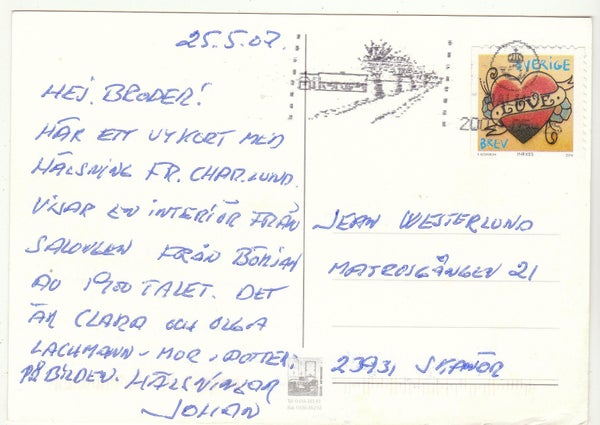 25.5.07.
HEJ. BRODER!
HÄR ETT VYKORT MED
HÄLSNING FR. CHAR.LUND.
VISAR EN INTERIÖR FRÅN
SALONGEN FRÅN BÖRJAN
AV 1900 TALET. DET
ÄR CLARA OCH OLGA
LACHMANN - MOR, DOTTER,
PÅ BILDEN. HÄLSNINGAR
JOHAN
SVERIGE
LOVE
BREV
JEAN WESTERLUND
MATROSGÅNGEN 21
23931 SKANÖR